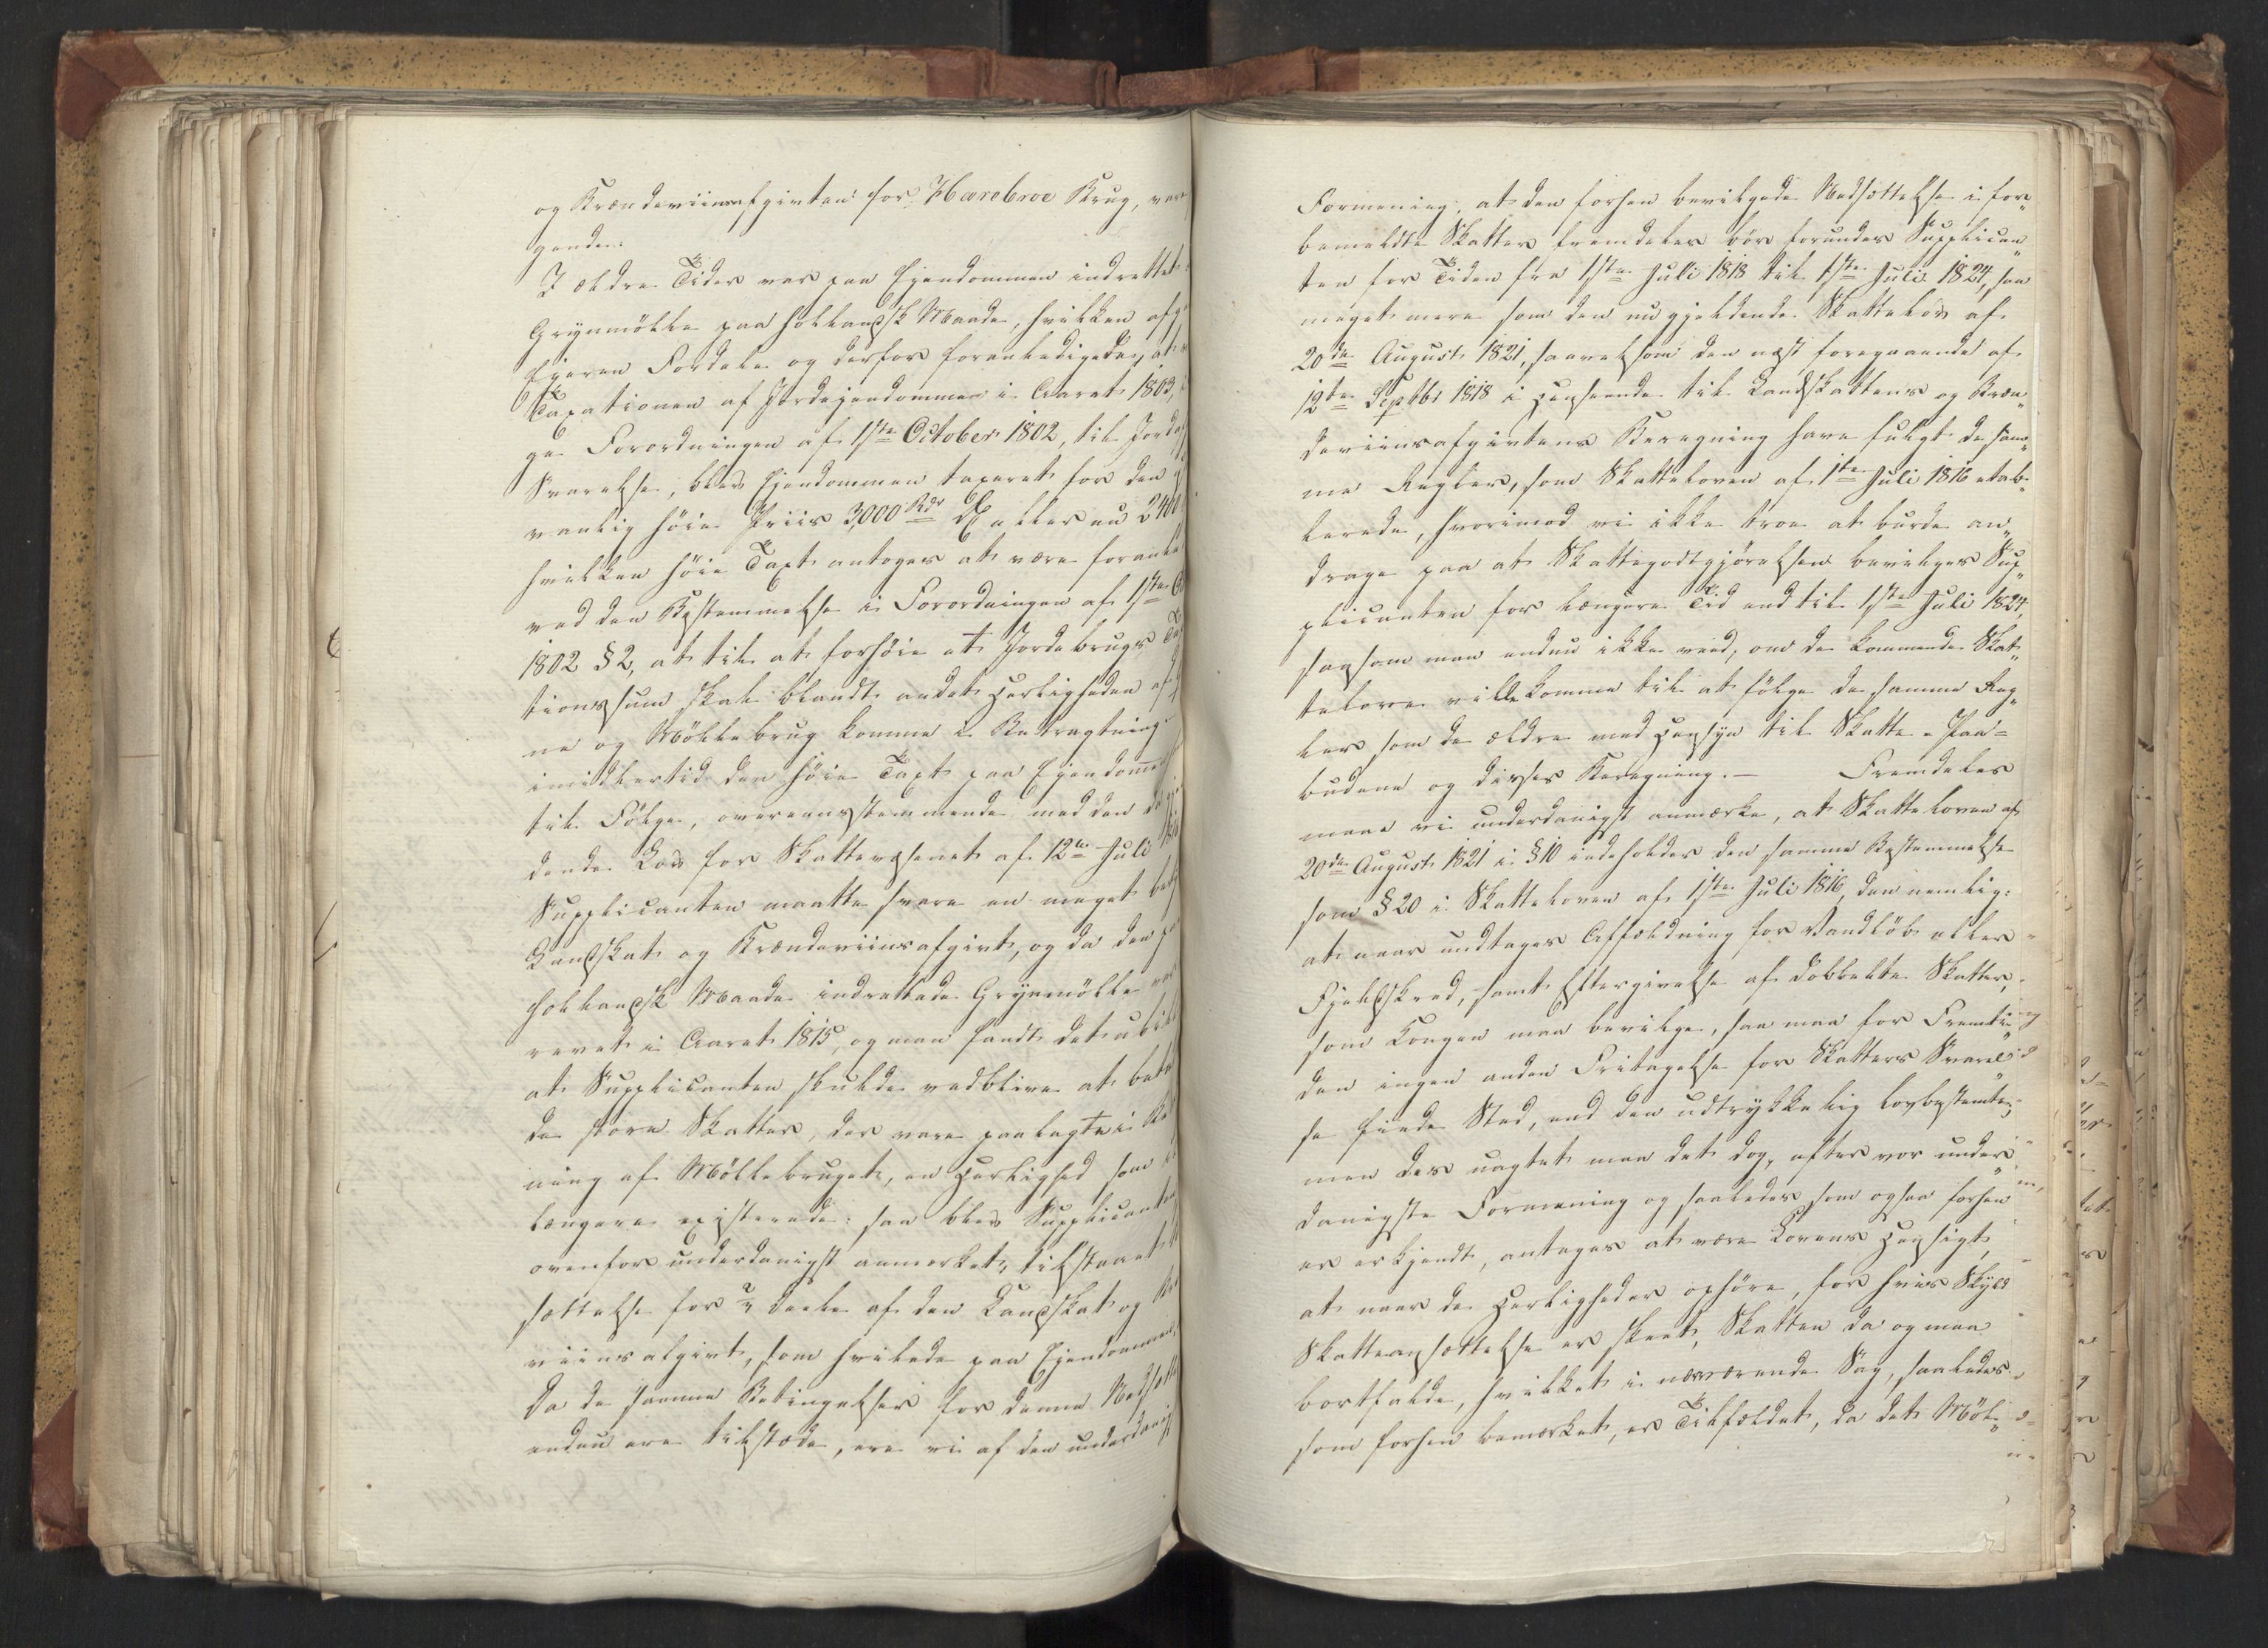 og Brændeviinsafgivten for Harebroe Krug, ver
gende:
I ældre Tider var paa Ejendommen indrettet
Grynmölle paa hollandsk Maade, hvilken afg
Ejeren Fordele og derfor foranledigede, at
Taxationen af Jordejendommen i Aaret 1803,
ge Forordningen af 1ste October 1802, til Jordaf
Svarelse, blev Ejendommen taxeret for den
vanlig höie Priis 3,000 Rdr DC eller nu 2400
hvilken höie Taxt antoges at være foranle
ved den Bestemmelse i Forordningen af 1ste O
1802 § 2, at til at forhöie et Jordebrugs Tax
tionssum skal blandt andet Herligheden af
ne og Möllebrug komme i Betragtning
imidlertid den höie Taxt paa Ejendomme
til Fölge, overeensstemmende med den da gj
dende Lov for Skattevæsenet af 1ste Juli 1816
Supplicanten maatte svare en meget bety
Landskat og Brændeviinsafgivt, og da den pa
hollandsk Maade indrettede Grynmölle var
revet i Aaret 1815, og man fandt det ubill
at Supplicanten skulde vedblive at beta
de store Skatter, der vare paalagte i Be
ning af Möllebruget, en Herlighed som ei
længere existerede: saa blev Supplicanten
ovenfor underdanigst anmærket, tilstaaet
sættelse for 2/3 Deele af den Landskat og Bræ
viinsafgivt, som hvilede paa Ejendommen.
Da de samme Betingelser for denne Nedsætte
endnu ere tilstæde, ere vi af den underdanig
Formening, at den forhen bevilgede Nedsættelse i for„
bemeldte Skatter fremdeles bör forundes Supplican„
ten for Tiden fra 1ste Juli 1818 til 1ste Juli 1824, saa
meget mere som den nu gjeldende Skattelov af
20de August 1821, saavelsom den næst foregaaende af
12te Septbr 1818 i Henseende til Landskattens og Bræn„
deviinsafgivtens Beregning have fulgt de sam„
me Regler, som Skatteloven af 1ste Juli 1816 etab„
lerede, hvorimod vi ikke troe at burde an„
drage paa at Skattegodtgjörelsen bevilges Sup„
plicanten for længere Tid end til 1ste Juli 1824,
saasom man endnu ikke veed, om de kommende Skat„
telove ville komme til at fölge de samme Reg„
ler som de ældre med Hensyn til Skatte-Paa=
budene og disses Beregning. — Fremdeles
maae vi underdanigst anmærke, at Skatteloven af
20de August 1821 i § 10 indeholder den samme Bestemmelse
som § 20 i Skatteloven af 1ste Juli 1816, den nemlig:
at naar undtages Affældning for Vandlöb eller
Fjeldskred, samt Eftergivelse af dobbelte Skatter,
som Kongen maa bevilge, saa maa for Fremti„
den ingen anden Fritagelse for Skatters Svarel„
se finde Sted, end den udtrykkelig lovbestemte;
men des uagtet maa det dog, efter vor under„
danigste Formening og saaledes som ogsaa forhen
er erkjendt, antages at være Lovens Hensigt,
at naar de Herligheder ophöre, for hvis Skyld
Skatteansættelse er skeet, Skatten da og maa
bortfalde, hvilket i nærværende Sag, saaledes
som forhen bemærket, er Tilfældet, da det Möl„